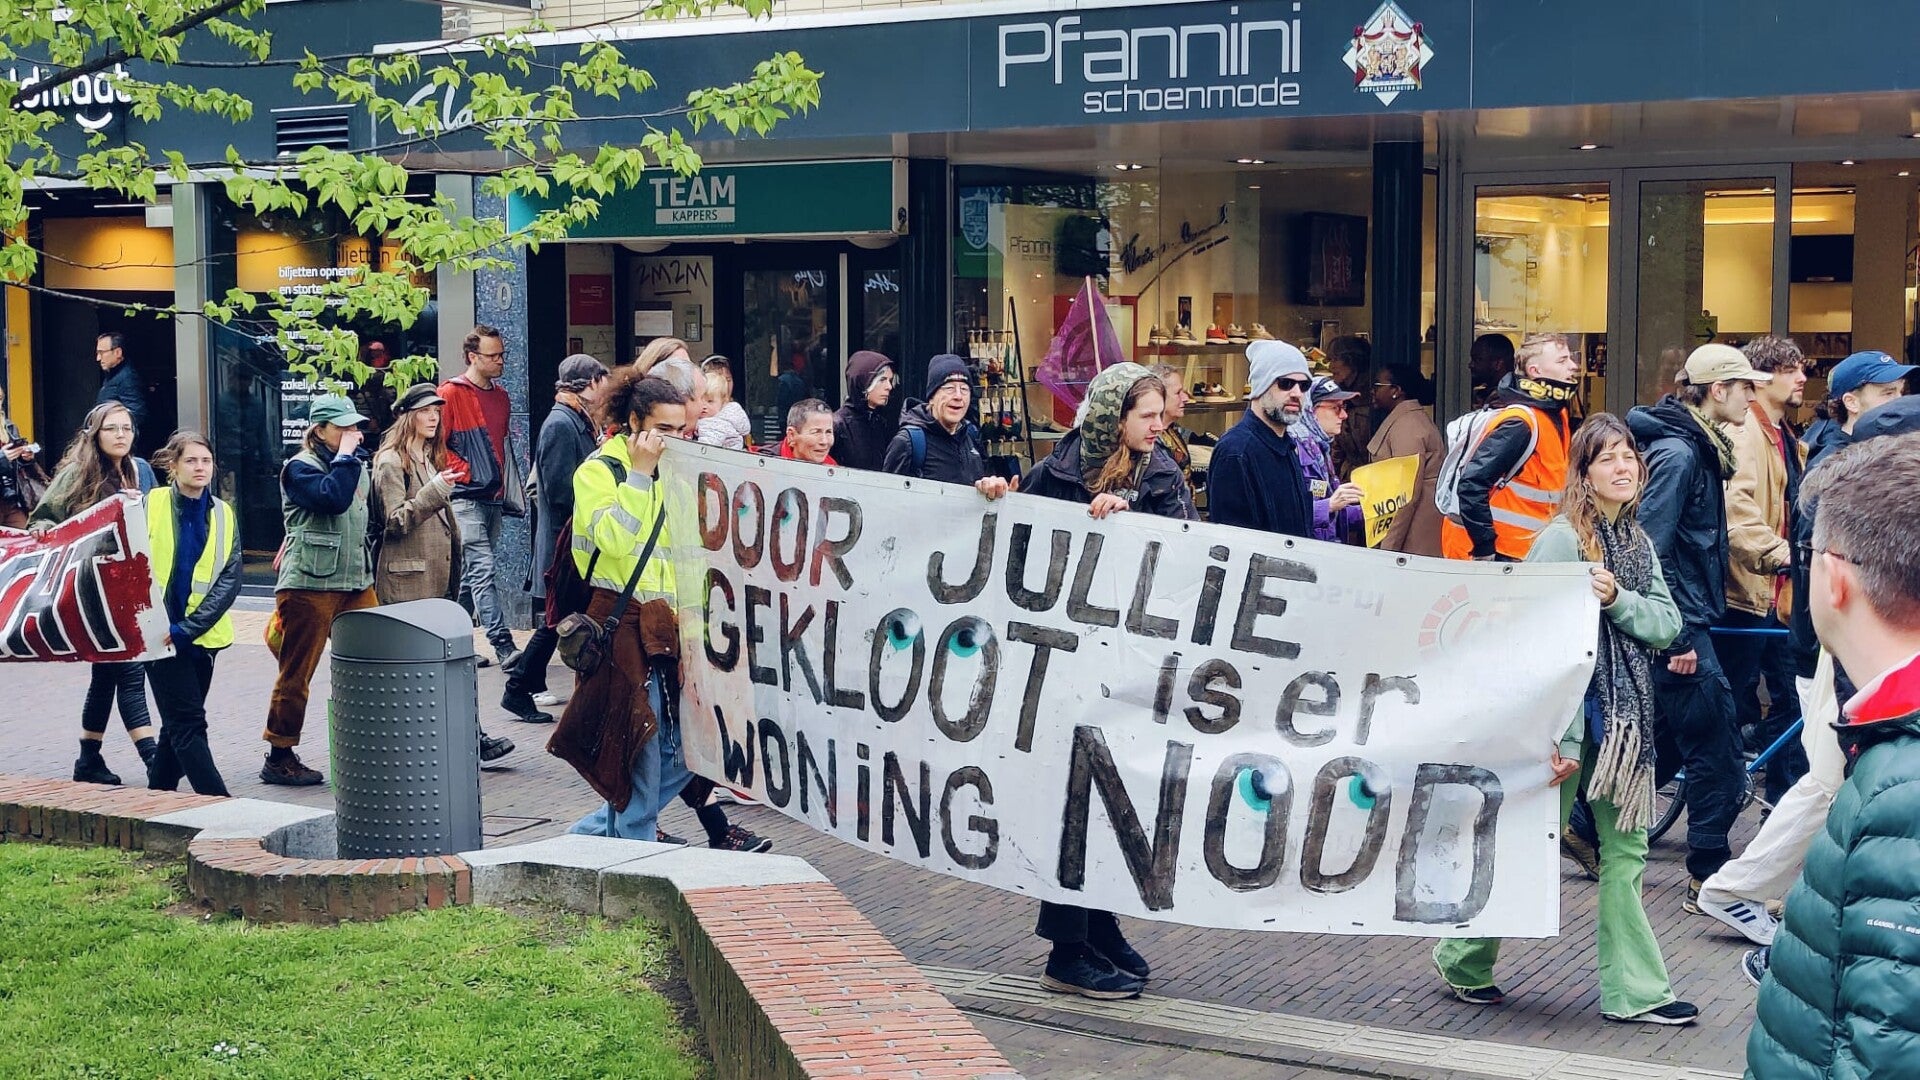 Pfannini
schoenmode
HOFLEVERANCIER
TEAM
KAPPERS
biljetten opnemen
en storten
zakelijk storten
Pfannini
WOON
DOOR JULLiE
GEKLOOT is er
WONiNG NOOD